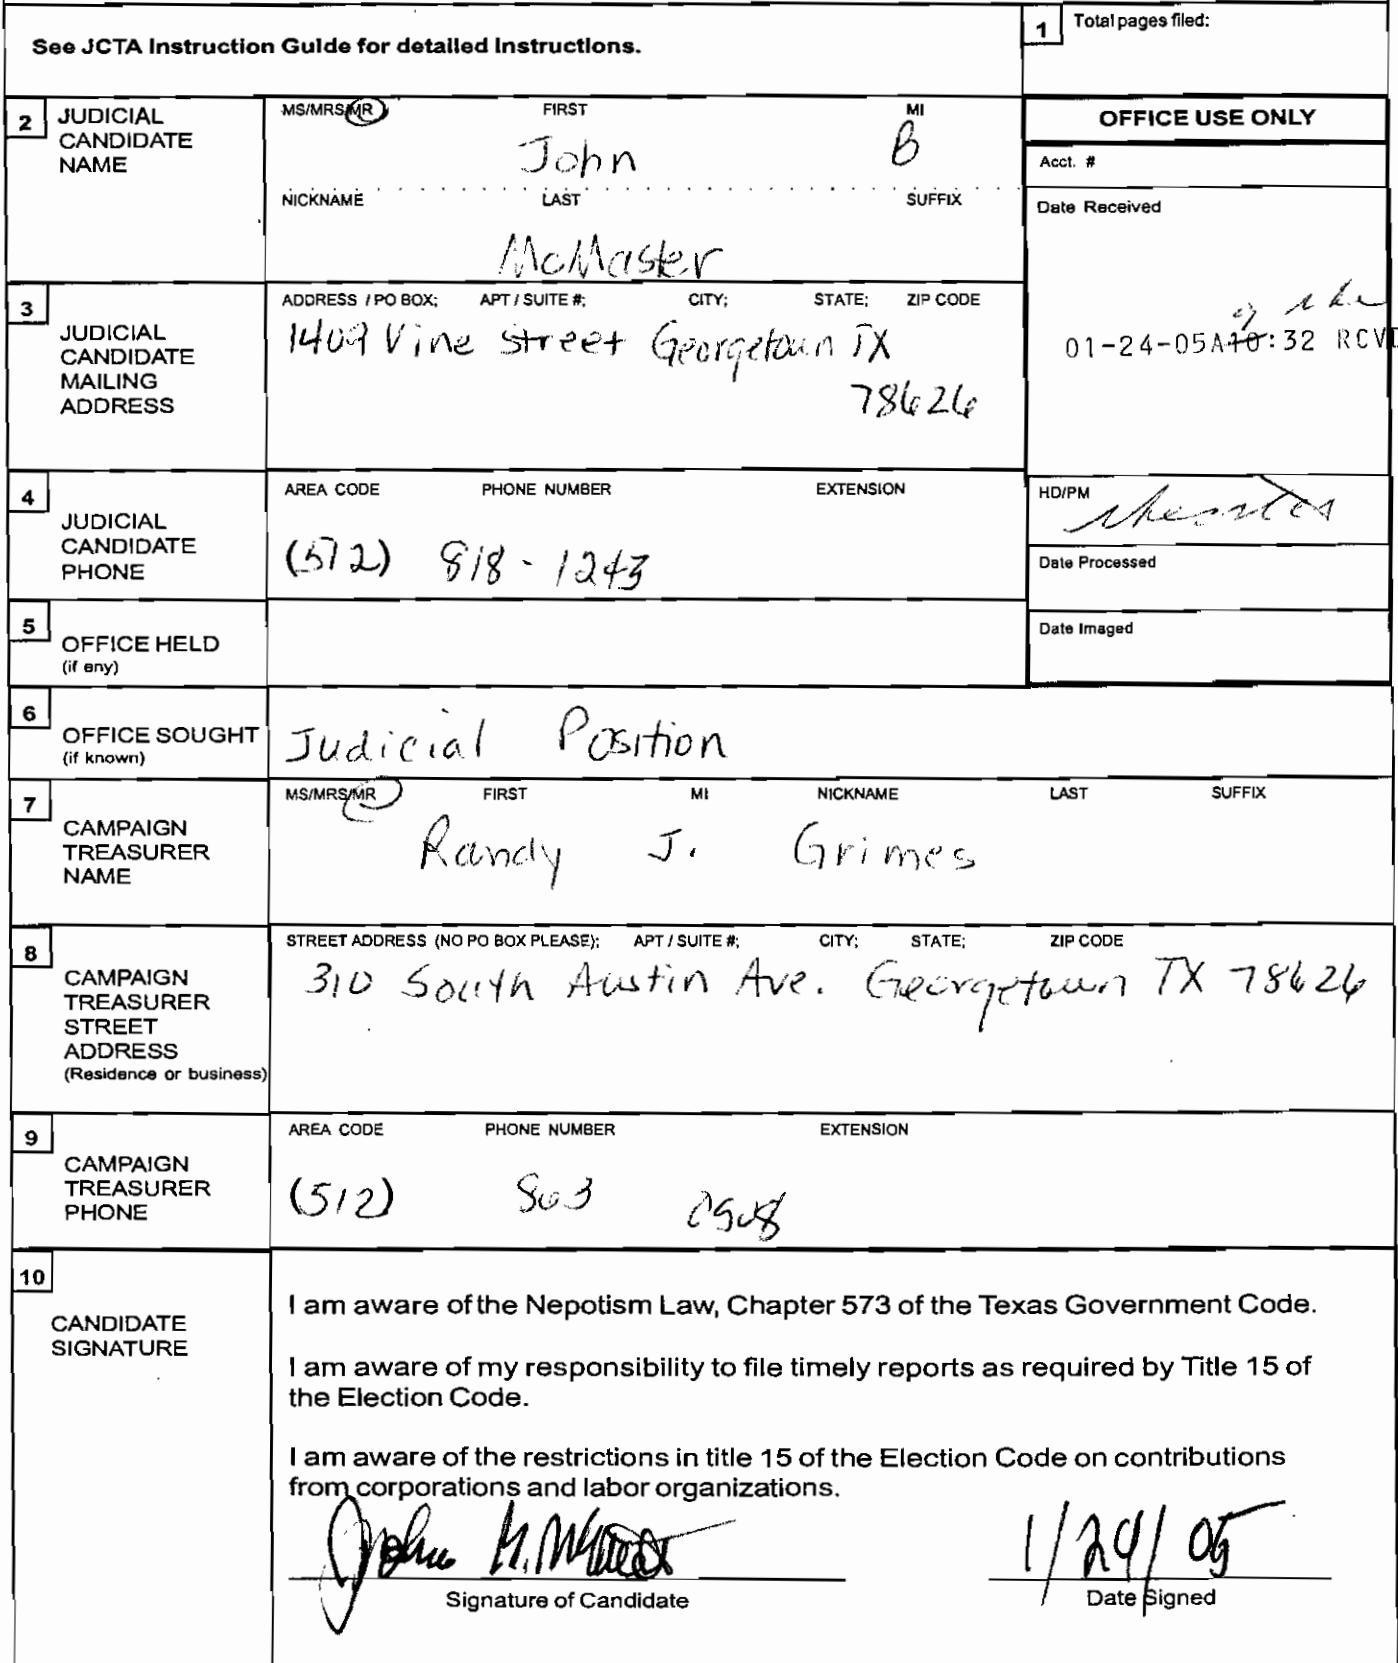 See JCTA Instruction Guide for detailed Instructions.
1 Total pages filed:
2 JUDICIAL CANDIDATE NAME
MS/MRS/MR FIRST MI
John B
NICKNAME LAST SUFFIX
McMaster
OFFICE USE ONLY
Acct. #
Date Received
01-24-05A10:32 RCVD
3 JUDICIAL CANDIDATE MAILING ADDRESS
ADDRESS / PO BOX; APT / SUITE #; CITY; STATE; ZIP CODE
1409 Vine Street Georgetown TX
78626
4 JUDICIAL CANDIDATE PHONE
AREA CODE PHONE NUMBER EXTENSION
(512) 818-1243
HD/PM
Date Processed
5 OFFICE HELD
(if any)
Date Imaged
6 OFFICE SOUGHT
(if known)
Judicial Position
7 CAMPAIGN TREASURER NAME
MS/MRS/MR FIRST MI NICKNAME LAST SUFFIX
Randy J. Grimes
8 CAMPAIGN TREASURER STREET ADDRESS
(Residence or business)
STREET ADDRESS (NO PO BOX PLEASE); APT / SUITE #; CITY; STATE; ZIP CODE
310 South Austin Ave. Georgetown TX 78626
9 CAMPAIGN TREASURER PHONE
AREA CODE PHONE NUMBER EXTENSION
(512)
10 CANDIDATE SIGNATURE
I am aware of the Nepotism Law, Chapter 573 of the Texas Government Code.
I am aware of my responsibility to file timely reports as required by Title 15 of
the Election Code.
I am aware of the restrictions in title 15 of the Election Code on contributions
from corporations and labor organizations.
John
1/24/05
Signature of Candidate
Date Signed